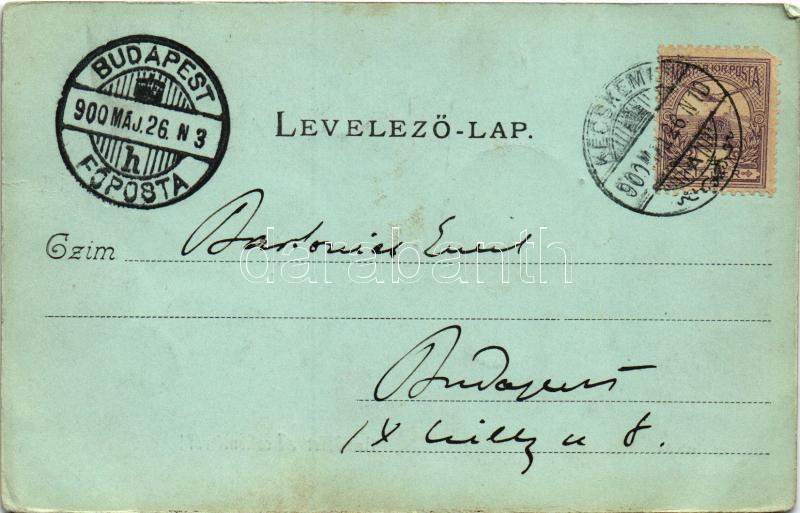 BUDAPEST
900 MÁJ. 26. N 3
h
FŐPOSTA
LEVELEZŐ-LAP.
KECSKEMÉT
MAGYAR KIR. POSTA
Czim Bartonics Emil
darabanth
Budapest
IX u 8.